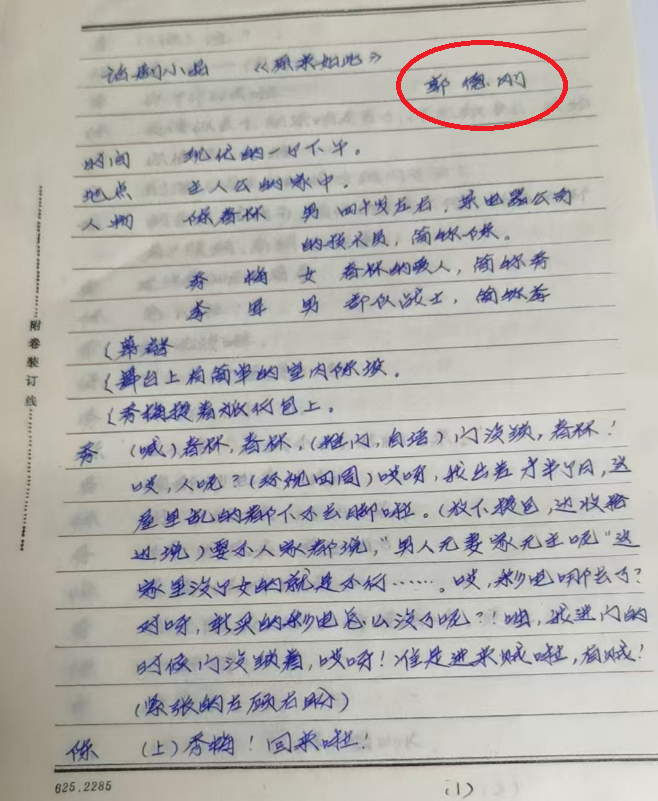 话剧小品 《原来如此》
郭德纲
时间 现代的一个下午。
地点 主人公的家中。
人物 陈春林 男 四十岁左右，某电器公司
的技术员，简称陈。
秀梅 女 春林的爱人，简称秀
李 男 部队战士，简称李
（幕启
（舞台上有简单的室内陈设。
（秀梅提着旅行包上。
秀 （喊）春林，春林，（推门，自语）门没锁，春林！
哎，人呢？（环视四周）哎呀，我出差才半个月，这
屋里乱的都下不去脚啦。（放下提包，边收拾
边说）要不人家都说，“男人无妻家无主呢”这
家里没个女的就是不行……。哎，彩电哪去了？
对呀，新买的彩电怎么没了呢？！哦，我进门的
时候门没锁着，哎呀！准是进来贼啦，有贼！
（紧张的左顾右盼）
陈 （上）秀梅！回来啦！
附卷装订线
625.2285
（1）